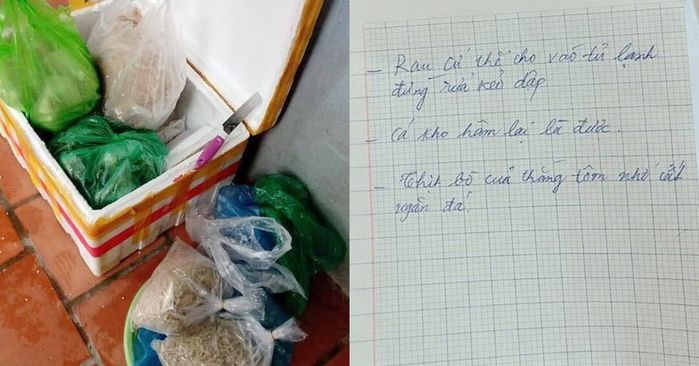 - Rau cứ thế cho vào tủ lạnh
đừng rửa kẻo dập
- Cá kho hâm lại là được.
- Thịt bò của thằng tôm nhớ cất
ngăn đá.